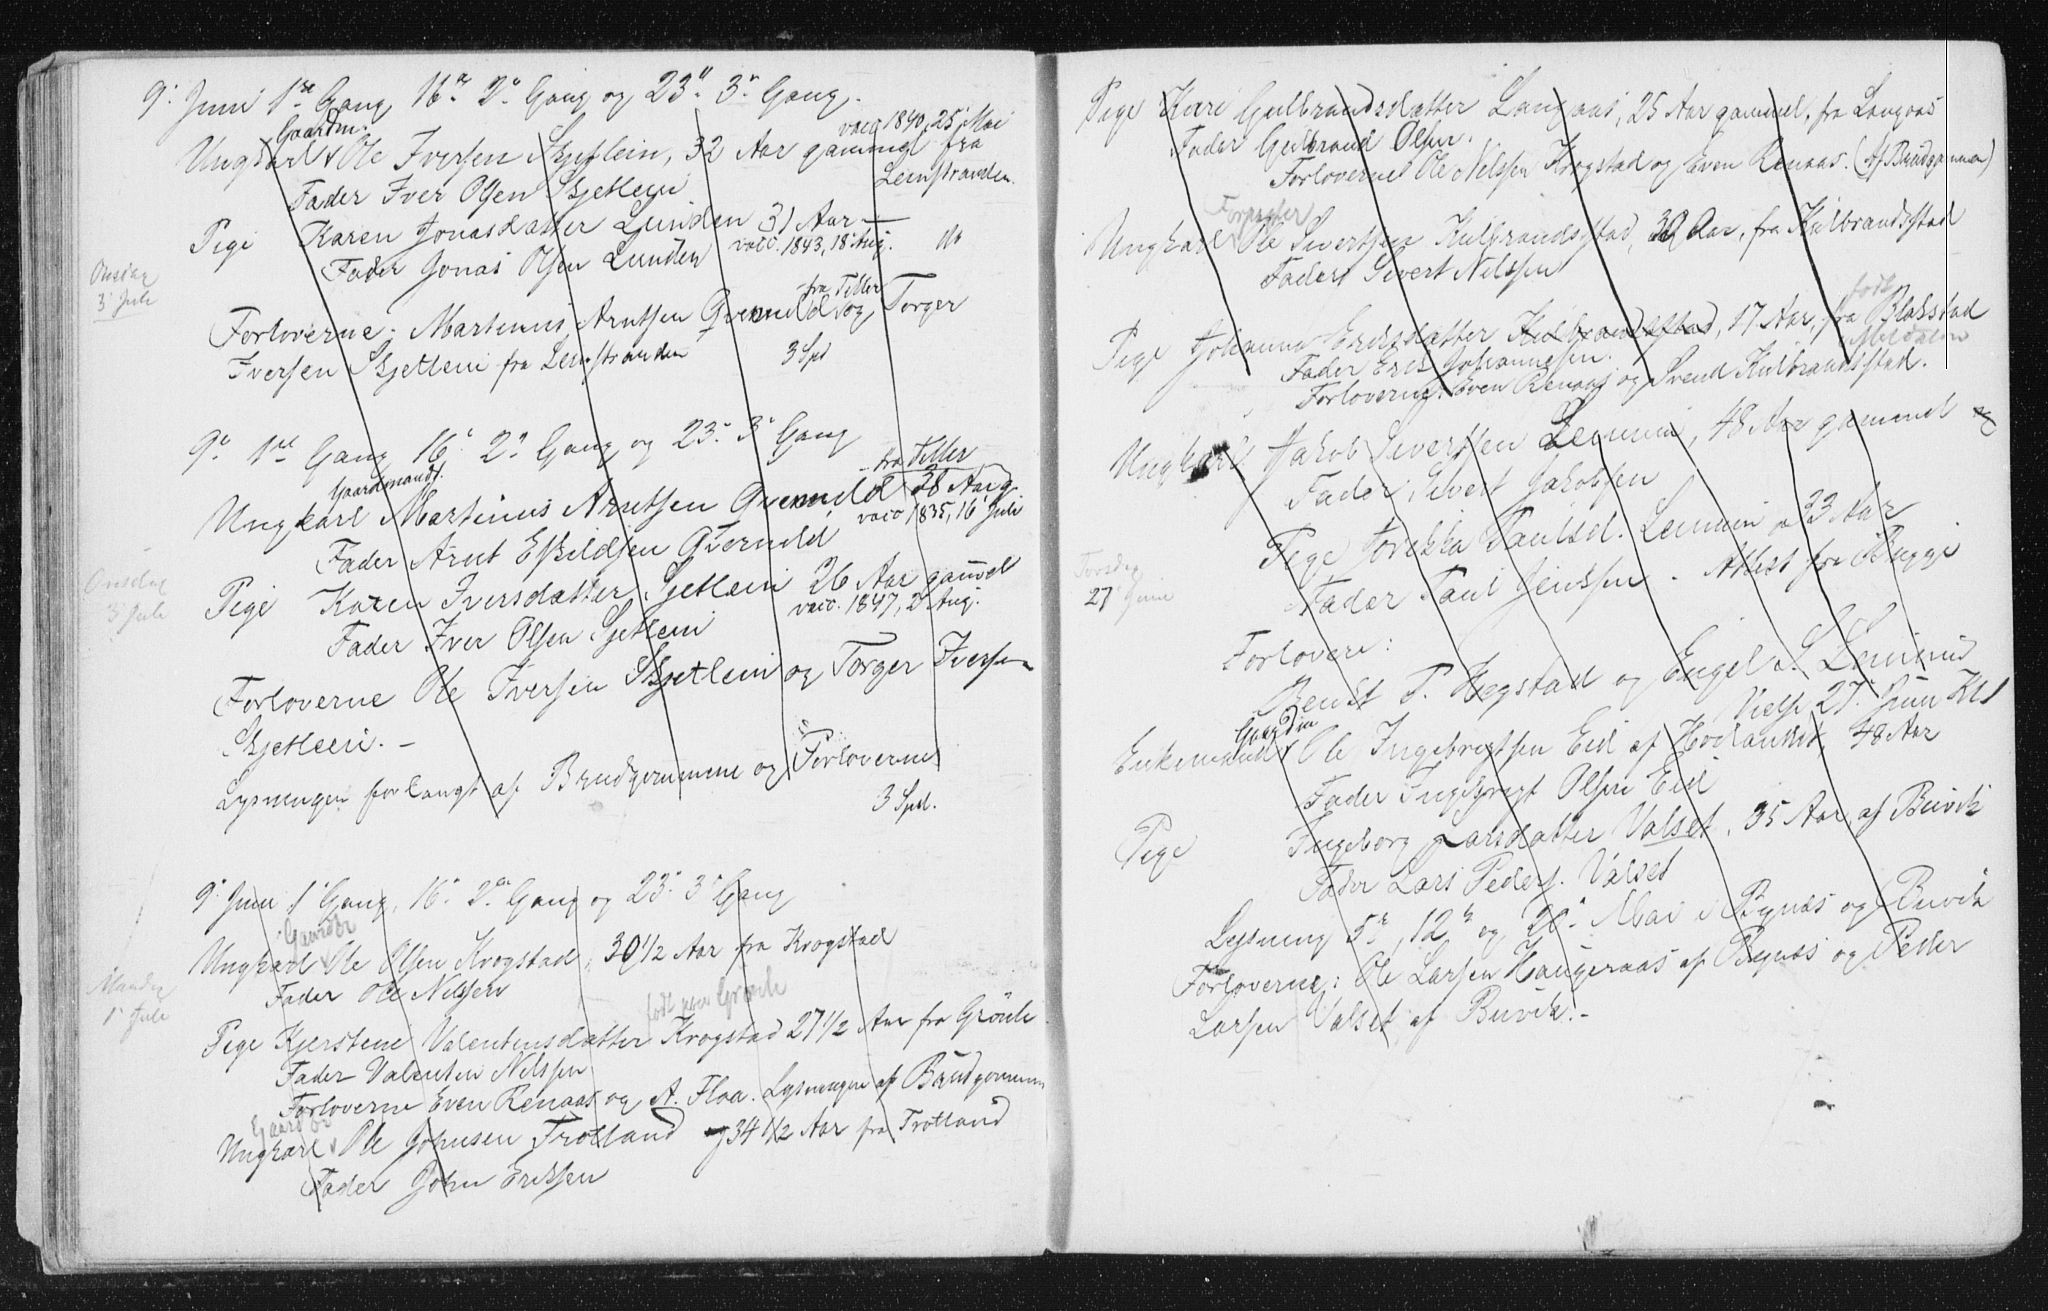 9' Juni 1ste Gang, 16de 2' Gang og 23' 3' Gang.
Gaardm.
Ungkarl Ole Iversen Skjetlein, 32 Aar gammel fra
vacc 1840, 25' Mai
Leinstranden.
Fader Iver Olsen Skjetlein
Pige Karen Jonasdatter Lunden 31 Aar
vacc. 1843, 18' Aug.
Fader Jonas Olsen Lunden
Onsdag
3' Juli
Forloverne: Martinus Arntsen Qvenild og Torger
fra Tiller
Iversen Skjetlein fra Leinstranden 3 Spd
9' 1ste Gang 16' 2' Gang og 23' 3' Gang
Gaardmands.
fra Tiller
Ungkarl Martinus Arntsen Qvenild 28 Aar g.
vacc 1835, 16' Juli
Fader Arnt Eskildsen Qvenild
Onsdag
3' Juli
Pige Karen Iversdatter Skjetlein 26 Aar gammel
vacc. 1847, 2' Aug.
Fader Iver Olsen Skjetlein
Forloverne Ole Iversen Skjetlein og Torger Iversen
Skjetlein. –
Lysningen forlangt af Brudgommene og Forloverne
3 Spd.
9' Juni 1' Gang, 16' 2den Gang og 23' 3' Gang
Gaardbr
Ungkarl Ole Olsen Krogstad, 30 1/2 Aar fra Krogstad
Fader Ole Nilssen
Mandag
1' Juli
født paa
Pige Kjerstene Valentinsdatter Krogstad 27 1/2 Aar fra
Fader Valentin Nilssen
Forloverne Even Renaas og A. Flaa. Lysningen af Brudgommen
Gaardbr
Ungkarl Ole Johnsen Trotland 34 1/2 Aar fra Trotland
Fader John Eriksen
Pige Kari Gulbrandsdatter Langaas, 25 Aar gammel, fra Langaas
Fader Gulbrand Olsen.
Forloverne Ole Nilssen Krogstad og Even Renaas. (Af Brudgommen)
Forpagter
Ungkarl Ole Sivertsen Kulbrandsstad, 30 Aar, fra Kulbrandsstad
Fader Sivert Nilssen
født
Pige Johanna Eriksdatter Kulbrandsstad, 17 Aar, fra Blokstad
Meldalen
Fader Erik Johannesen.
Forloverne: Even Renaas og Svend Kulbrandsstad.
Ungkarl Jakob Sivertsen Lemmin, 48 Aar gammel
Fader Sivert Jakobsen
Torsdag
27' Juni
Pige Paulsd. Lemmin 33 Aar
Fader Paul Jenssen. Attest fra Bugge
Forlovere:
Bendt P. Hegstad og Engel S. Lemmin
Vielse 27' Juni Kl 1
Gaardm
Enkemand Ole Ingebrigtsen Eid af 48 Aar
Fader Ingebrigt Olsen Eid
Pige Ingeborg Larsdatter Valset, 35 Aar af Buvik
Fader Lars Peders. Valset
Lysning 5te, 12te og 20' Mai i Bynæs og Buvik
Forloverne: Ole Larsen Haugeraas af Bynæs og Peder
Larsen Valset af Buvik. –